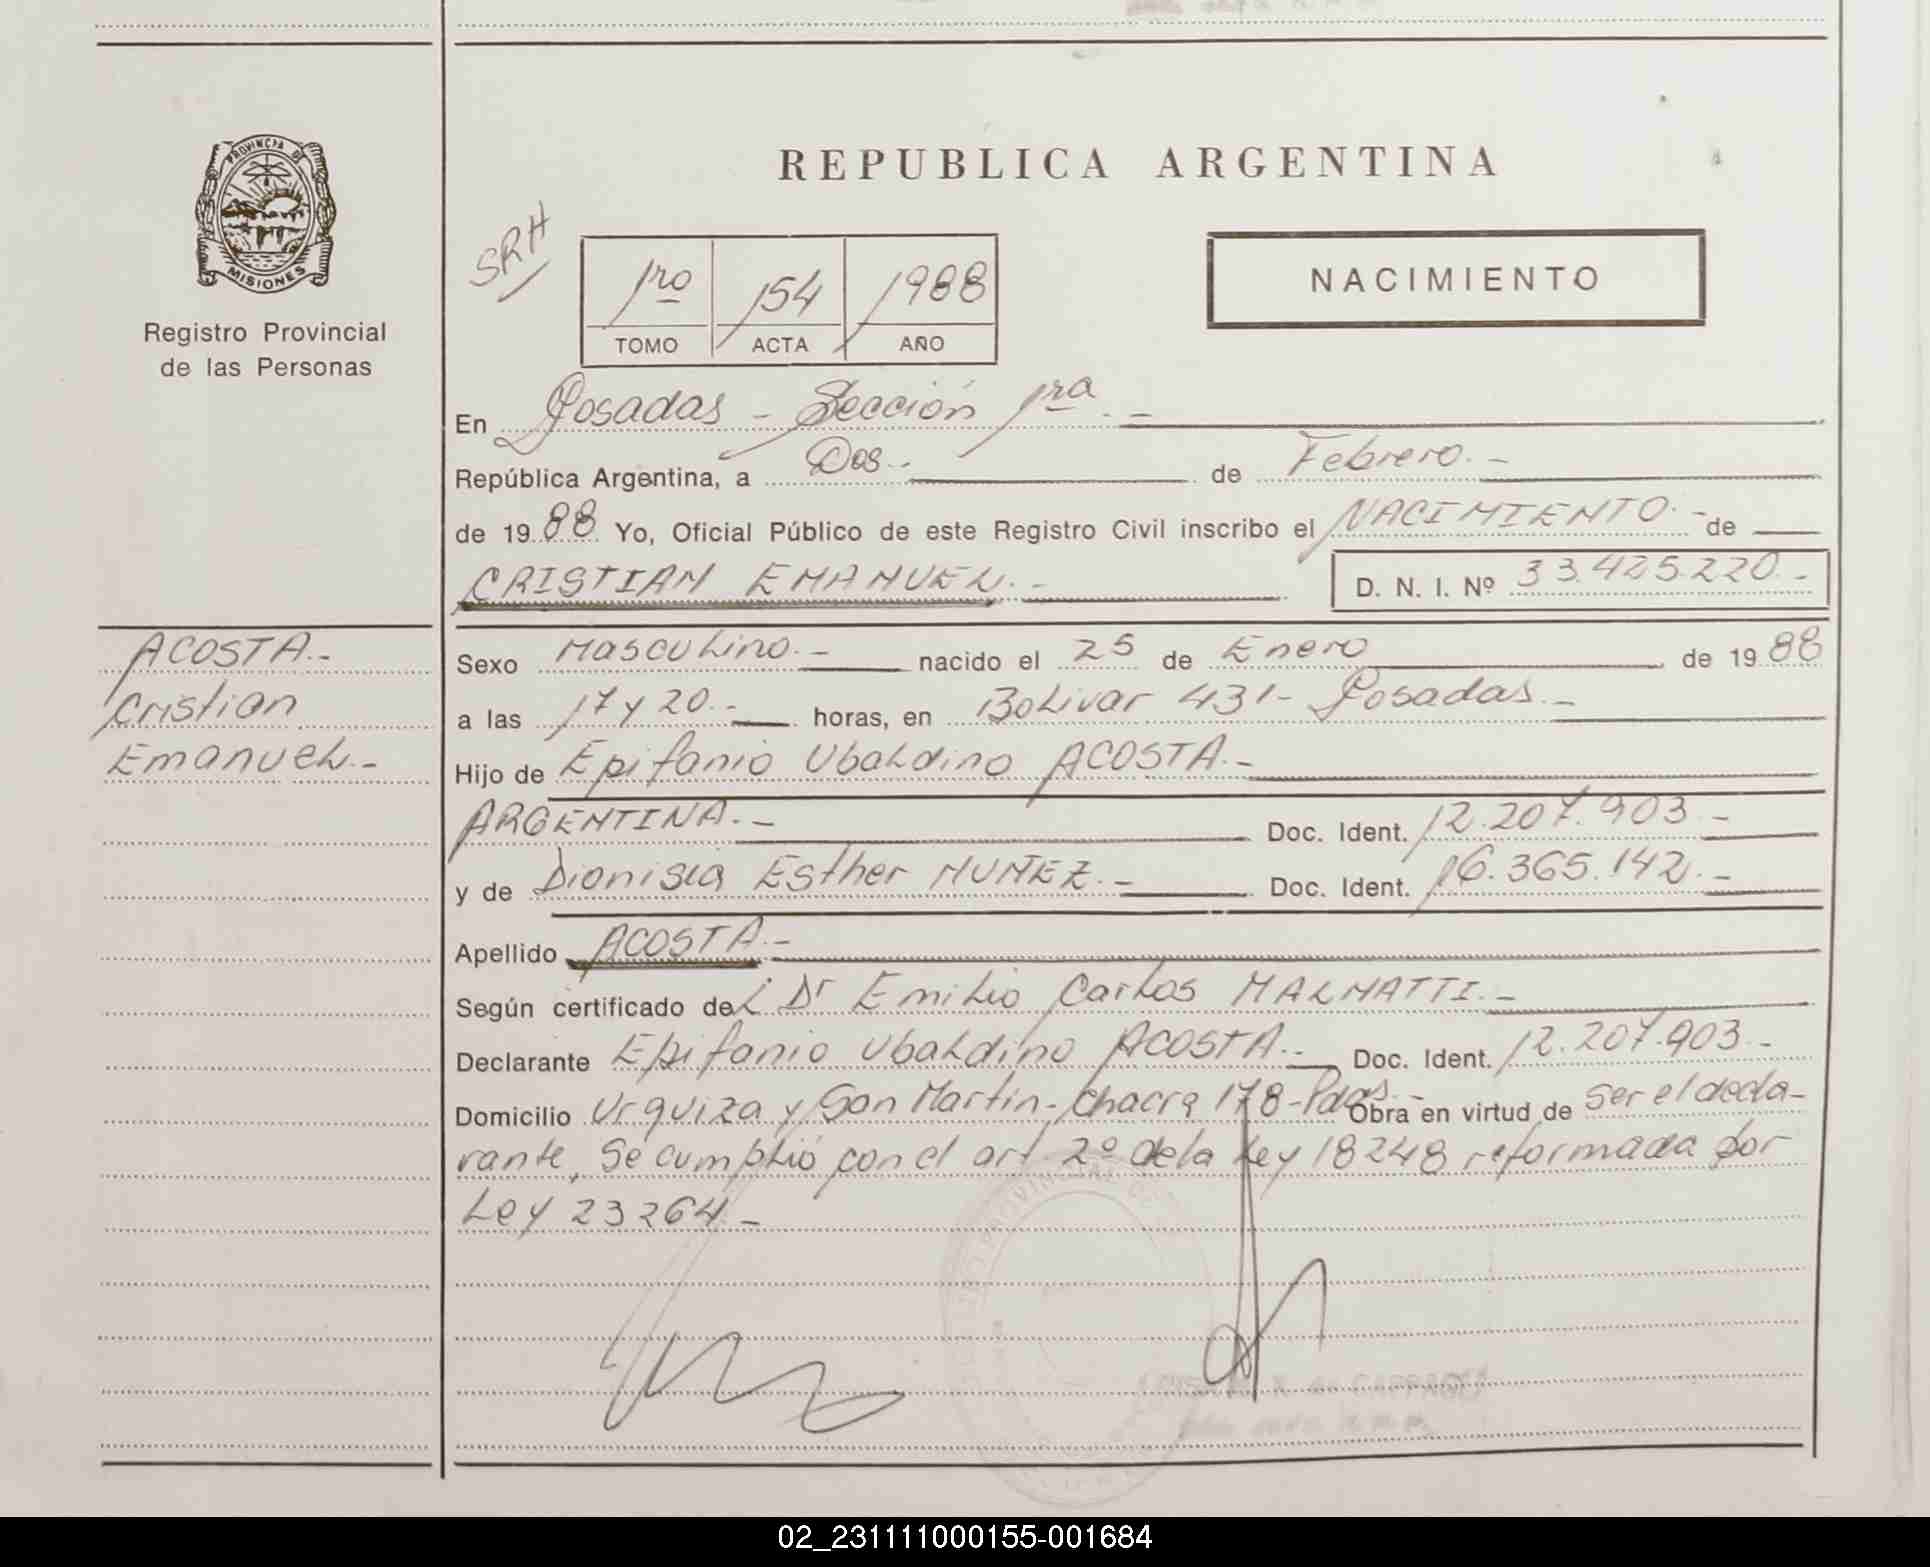 PROVINCIA DE
MISIONES
Registro Provincial
de las Personas
REPUBLICA ARGENTINA
SRH
1ro 154 1988
TOMO ACTA AÑO
NACIMIENTO
En Posadas - Sección 1ra. -
República Argentina, a Dos.- de Febrero.-
de 1988 Yo, Oficial Público de este Registro Civil inscribo el NACIMIENTO.- de
CRISTIAN EMANUEL.-
D. N. I. Nº 33.425.220.-
ACOSTA.-
Cristian
Emanuel.-
Sexo Masculino.- nacido el 25 de Enero de 1988
a las 17 y 20.- horas, en Bolivar 431- Posadas.-
Hijo de Epifanio Ubaldino ACOSTA.-
ARGENTINA.- Doc. Ident. 12.207.903.-
y de Dionisia Esther NUÑEZ.- Doc. Ident. 16.365.142.-
Apellido ACOSTA.-
Según certificado del Dr Emilio Carlos MALMATTI.-
Declarante Epifanio Ubaldino ACOSTA.- Doc. Ident. 12.207.903.-
Domicilio Urquiza y San Martin- Chacra 178-Pdas.- Obra en virtud de ser el decla-
rante, Se cumplió con el art 2º de la Ley 18248 reformada por
Ley 23264 -
02_231111000155-001684